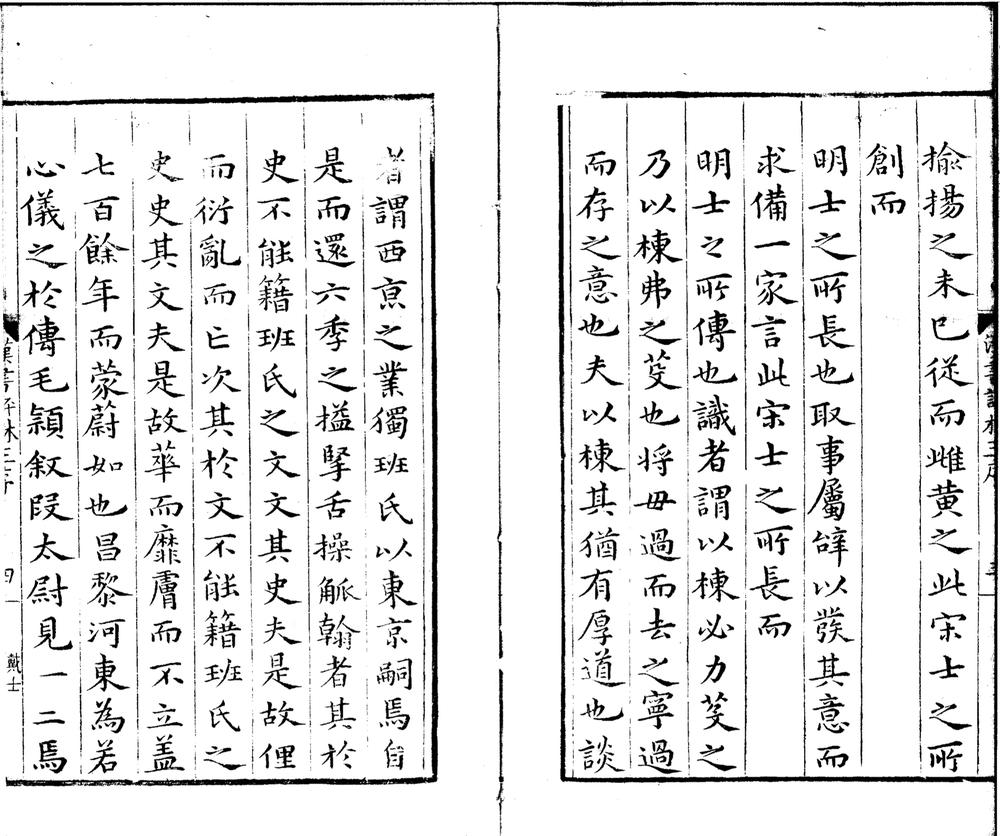 揄揚之未已從而雌黃之此宋士之所
創而
明士之所長也取事屬辭以發其意而
求備一家言此宋士之所長而
明士之所傳也識者謂以棟必力芟之
乃以棟弗之芟也將毋過而去之寧過
而存之意也夫以棟其猶有厚道也談
者謂西京之業獨班氏以東京嗣焉自
是而還六季之搤掔舌操觚翰者其於
史不能籍班氏之文文其史夫是故俚
而衍亂而亡次其於文不能籍班氏之
史史其文夫是故華而靡膚而不立盖
七百餘年而蒙蔚如也昌黎河東為若
心儀之於傳毛穎叙段太尉見一二焉
四
戴士